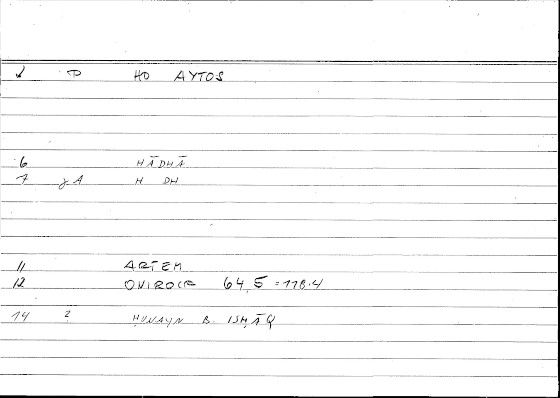 1 HO AYTOS
6 HĀDHĀ
7 A H DH
11 ARTEM
12 ONIROCR 64,5 = 118.4
14 ? ḤUNAYN B. ISḤĀQ